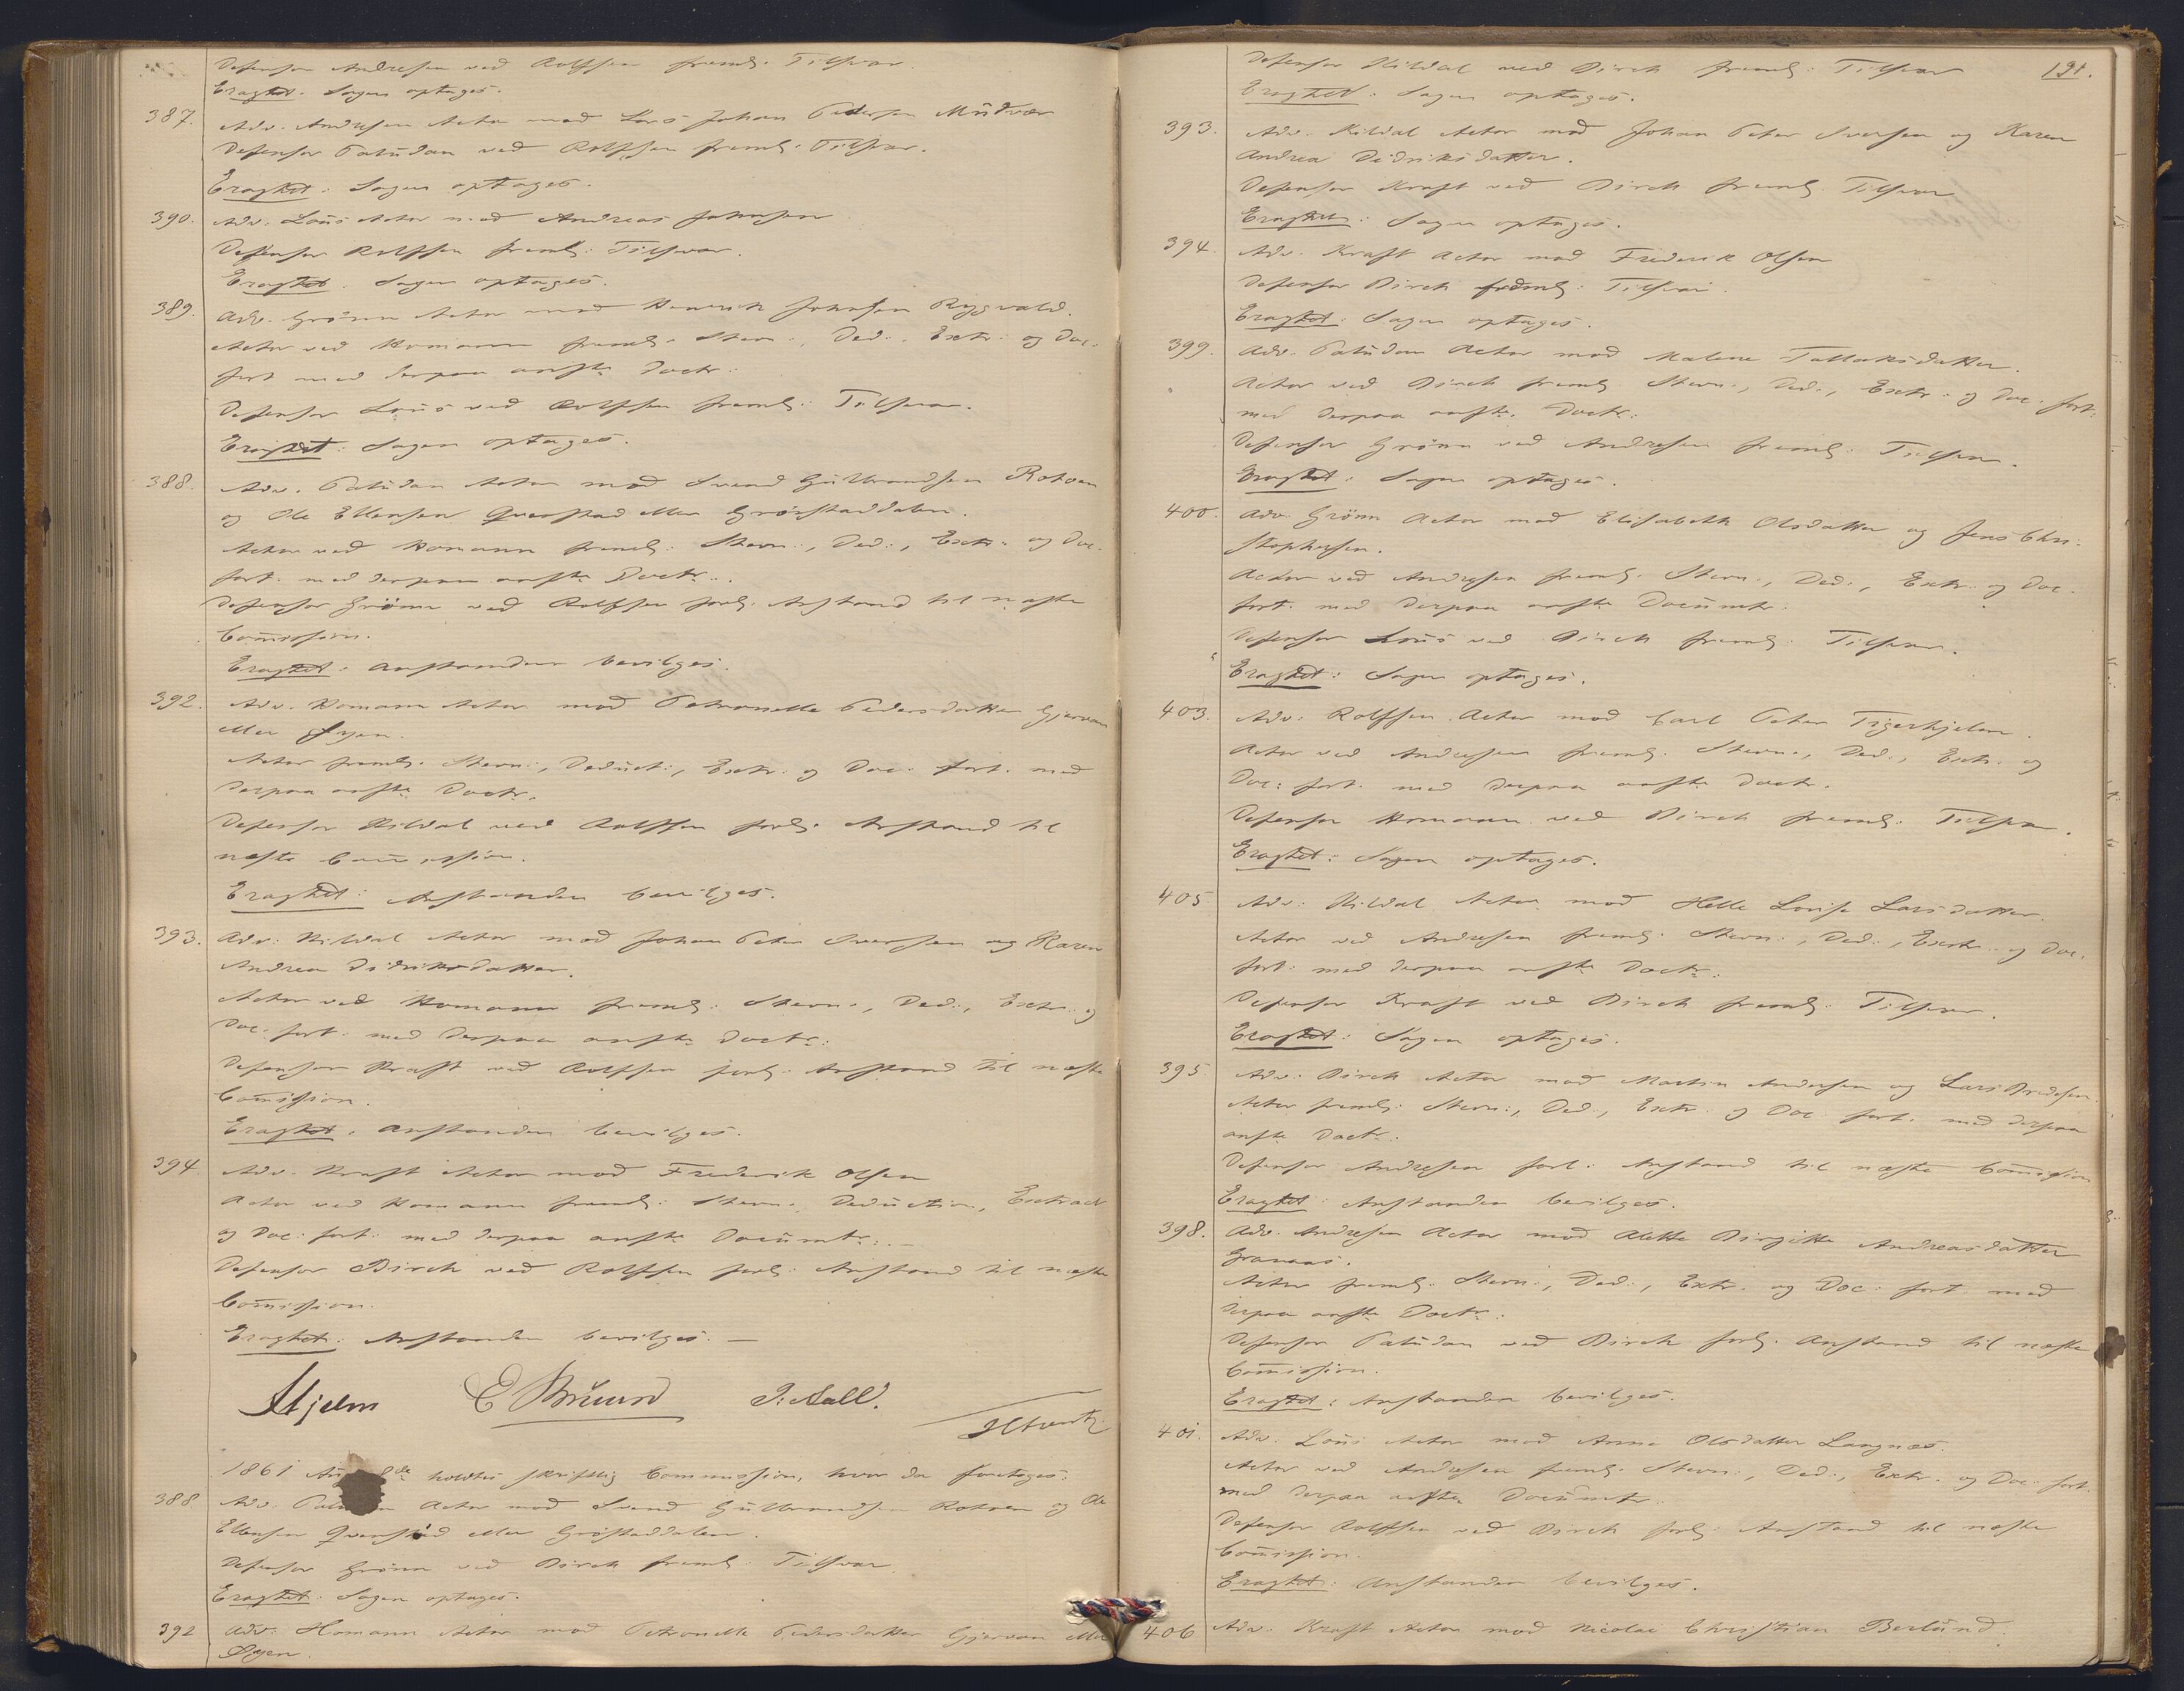 Defensor Andresen ved Rolfsen freml: Tilsvar.
Eragtet: Sagen optages.
387. Adv. Andresen Actor mod Lars Johan Pedersen
Defensor Paludan ved Rolfsen freml: Tilsvar.
Eragtet: Sagen optages.
390. Adv. Lous Actor mod Andreas Johnsen
Defensor Rolfsen freml: Tilsvar.
Eragtet: Sagen optages.
389. Adv. Grönn Actor mod Henrik Johnsen Rygvold.
Actor ved Homann freml: Stevn:, Ded:, Extr: og Doc:
fort. med derpaa anfte Doctr:
Defensor Lous ved Rolfsen freml: Tilsvar.
Eragtet: Sagen optages.
388. Adv. Paludan Actor mod Svend Gulbrandsen Rotven
og Ole Ellensen Qvenstad eller Gröstaddalen.
Actor ved Homann freml: Stevn:, Ded:, Extr: og Doc.
fort. med derpaa anfte Doctr:.
Defensor Grönn ved Rolfsen forl: Anstand til næste
Com̄ission.
Eragtet: Anstanden bevilges.
392. Adv. Homann Actor mod Petronelle Pedersdatter Gjervan
eller Øyen.
Actor freml: Stevn:, Deduct:, Extr: og Doc: fort. med
derpaa anfte Doctr.
Defensor Kildal ved Rolfsen forl: Anstand til
næste Com̄ission.
Eragtet: Anstanden bevilges.
393. Adv: Kildal Actor mod Johan Peter Iversen og Karen
Andrea Didriksdatter.
Actor ved Homann freml: Stevn:, Ded:, Extr: og
Doc: fort: med derpaa anfte Doctr:
Defensor Kraft ved Rolfsen forl: Anstand til næste
Com̄ission.
Eragtet: Anstanden bevilges.
394. Adv. Kraft Actor mod Frederik Olsen
Actor ved Homann freml: Stevn:, Deduction, Extract
og Doc: fort: med derpaa anfte Documtr:.—
Defensor Birch ved Rolfsen forl: Anstand til næste
Com̄ission.
Eragtet: Anstanden bevilges.—
Hjelm E Bruun J: Aall.
1861 Aug de holdtes skriftlig Commission, hvor da foretoges:
388 Adv. Actor mod Svend Gulbrandsen Rotven og Ole
Ellensen Qvenstad eller Gröstaddalen.
Defensor Grönn ved Birch freml: Tilsvar.
Eragtet: Sagen optages.
392 Adv: Homann Actor mod Petronelle Pedersdatter Gjervan eller
Øyen.
191.
Defensor Kildal ved Birch freml: Tilsvar
Eragtet: Sagen optages.
393. Adv. Kildal Actor mod Johan Peter Iversen og Karen
Andrea Didriksdatter.
Defensor Kraft ved Birch freml: Tilsvar
Eragtet: Sagen optages.
394. Adv. Kraft Actor mod Frederik Olsen
Defensor Birch freml: Tilsvar.
Eragtet: Sagen optages.
399. Adv. Paludan Actor mod Malene Tallaksdatter.
Actor ved Birch freml: Stevn:, Ded:, Extr: og Doc: fort:
med derpaa anfte. Doctr:
Defensor Grönn ved Andresen freml: Tilsvar.
Eragtet: Sagen optages.
400. Adv. Grönn Actor mod Elisabeth Olsdatter og Jens Chri-
stophersen.
Actor ved Andresen freml: Stevn:, Ded:, Extr: og Doc.
fort. med derpaa anfte Documtr:
Defensor Lous ved Birch freml: Tilsvar.
Eragtet: Sagen optages.
403. Adv: Rolfsen Actor mod Carl Peter Tigerhjelm.
Actor ved Andresen freml: Stevn:, Ded:, Extr. og
Doc: fort. med derpaa anfte Doctr.
Defensor Homann ved Birch freml: Tilsvar.
Eragtet: Sagen optages.
405 Adv: Kildal Actor mod Helle Lovise Larsdatter.
Actor ved Andresen freml: Stevn:, Ded:, Extr: og Doc.
fort: med derpaa anfte Doctr:
Defensor Kraft ved Birch freml: Tilsvar.
Eragtet: Sagen optages.
395. Adv: Birch Actor mod Martin Andersen og Lars Bredesen.
Actor freml: Stevn:, Ded:, Extr: og Doc: fort. med derpaa
anfte Doctr:
Defensor Andresen forl: Anstand til næste Com̄ission
Eragtet: Anstanden bevilges.
398. Adv. Andresen Actor mod Alette Birgitte Andreasdatter
Granaas.
Actor freml: Stevn:, Ded:, Extr. og Doc: fort. med
derpaa anfte Doctr:
Defensor Paludan ved Birch forl: Anstand til næste
Com̄ission.
Eragtet: Anstanden bevilges.
401. Adv. Lous Actor mod Anne Olsdatter Langnæs.
Actor ved Andresen freml: Stevn:, Ded:, Extr. og Doc: fort.
med derpaa anfte Documtr:
Defensor Rolfsen ved Birch forl: Anstand til næste
Com̄ission.
Eragtet: Anstanden bevilges.
406 Adv. Kraft Actor mod Nicolai Christian Berlund.